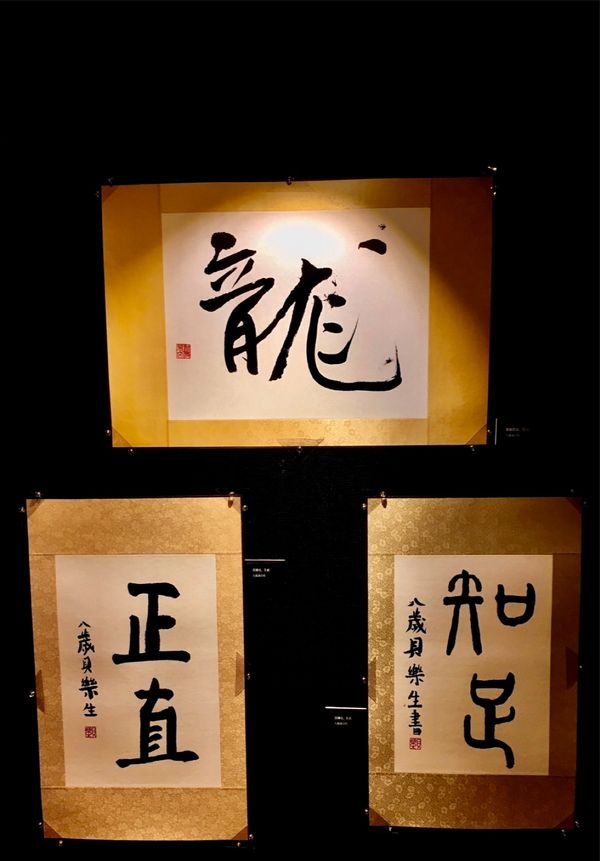 龍
正直
八歲貝樂生
知足
八歲貝樂生書